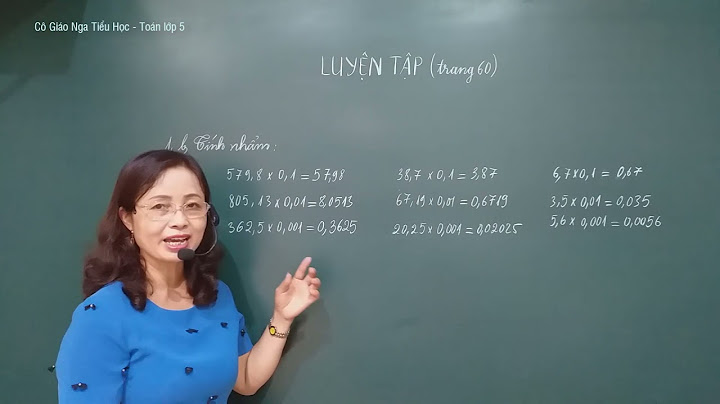 Cô Giáo Nga Tiểu Học - Toán lớp 5
LUYỆN TẬP (trang 60)
1. b, Tính nhẩm:
579,8 x 0,1 = 57,98 38,7 x 0,1 = 3,87 6,7 x 0,1 = 0,67
805,13 x 0,01 = 8,0513 67,19 x 0,01 = 0,6719 3,5 x 0,01 = 0,035
362,5 x 0,001 = 0,3625 20,25 x 0,001 = 0,02025 5,6 x 0,001 = 0,0056